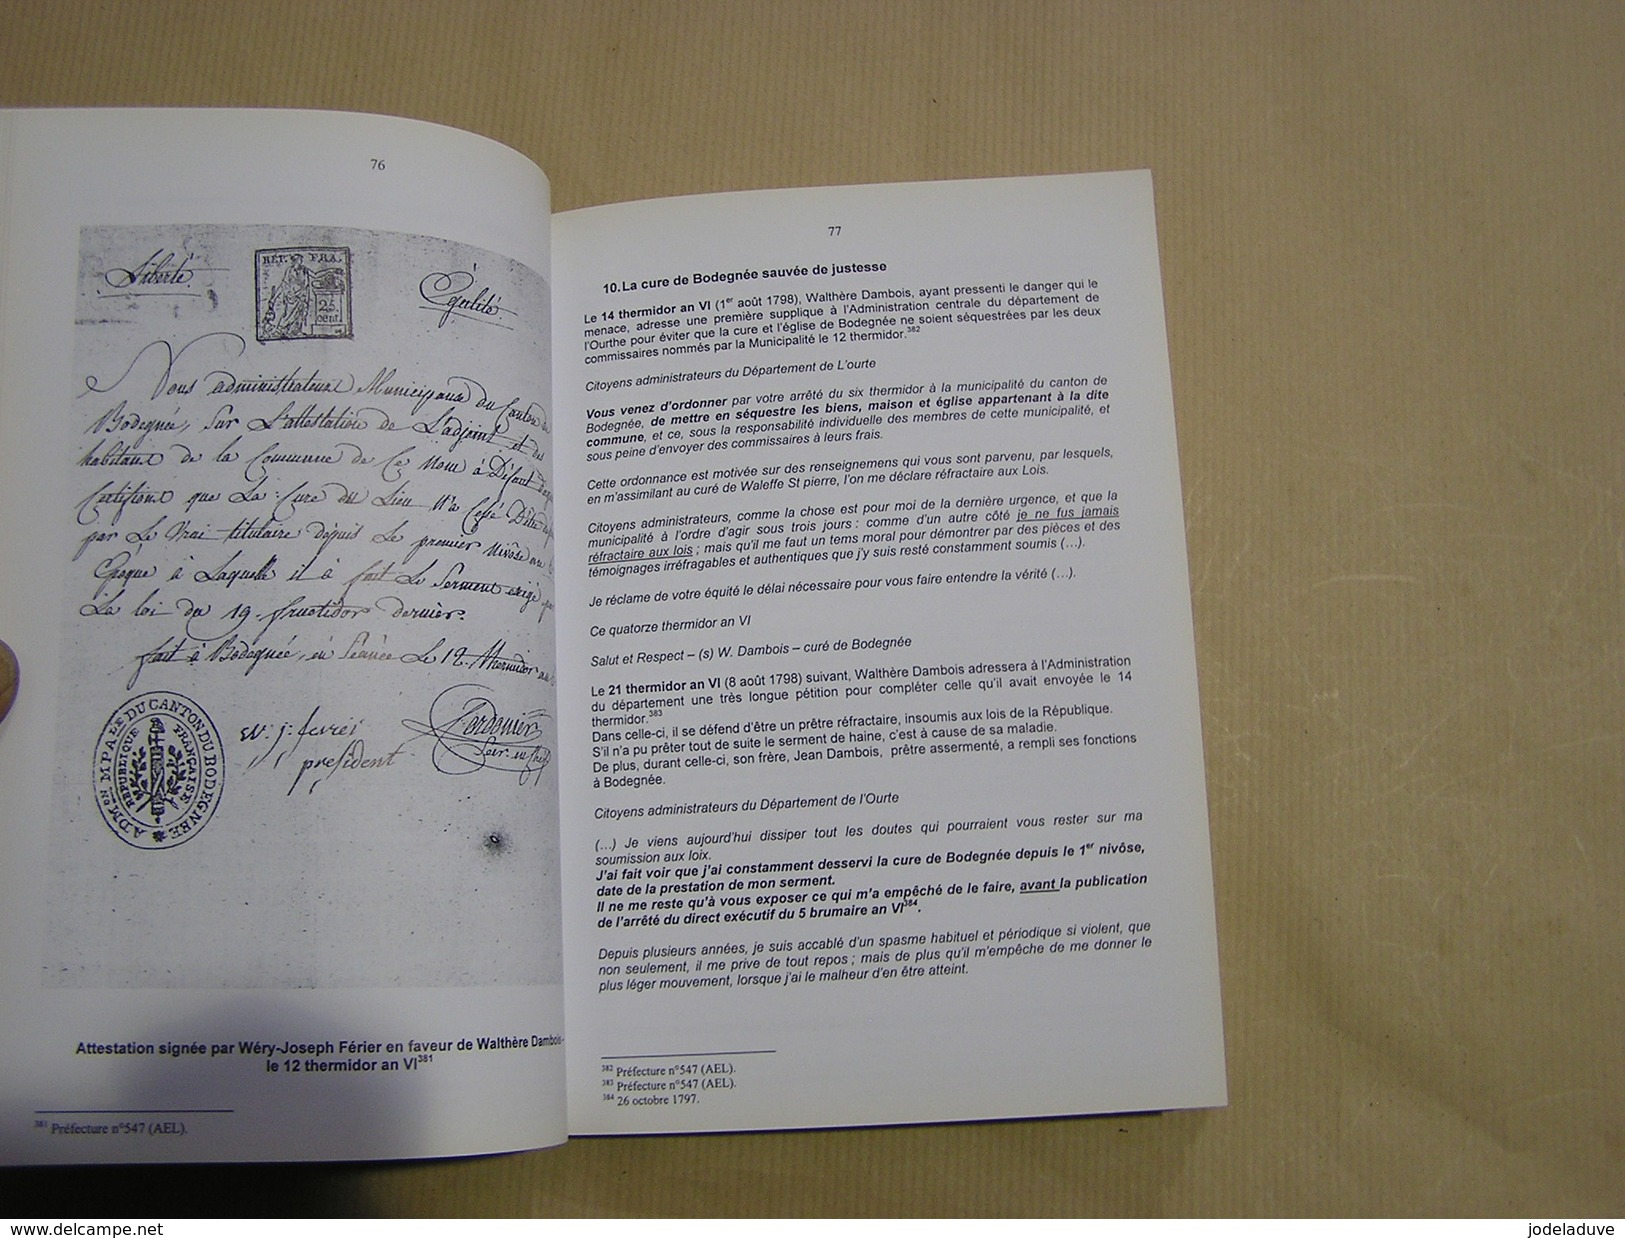 76
Liberté
RÉP. FRA.
25
cent.
Égalité
Nous administrateurs Municipaux du Canton de
Bodegnée, sur L'attestation de L'adjoint et des
habitans de la Commune de Ce Nom à Défaut
Certifions que La Cure du Lieu N'a Cessé D'être
par Le Vrai titulaire depuis Le premier Nivôse an
Époque à Laquelle il à fait Le Serment exigé par
La loi du 19 fructidor dernier.
fait à Bodegnée, en Séance Le 12 Thermidor an
W. j. ferier
président
Secr. en chef
ADM.ON MPALE DU CANTON DU BODEGNÉE
RÉPUBLIQUE FRANÇAISE
Attestation signée par Wéry-Joseph Férier en faveur de Walthère Dambois -
le 12 thermidor an VI381
381 Préfecture n°547 (AEL).
77
10. La cure de Bodegnée sauvée de justesse
Le 14 thermidor an VI (1er août 1798), Walthère Dambois, ayant pressenti le danger qui le
menace, adresse une première supplique à l'Administration centrale du département de
l'Ourthe pour éviter que la cure et l'église de Bodegnée ne soient séquestrées par les deux
commissaires nommés par la Municipalité le 12 thermidor.382
Citoyens administrateurs du Département de L'ourte
Vous venez d'ordonner par votre arrêté du six thermidor à la municipalité du canton de
Bodegnée, de mettre en séquestre les biens, maison et église appartenant à la dite
commune, et ce, sous la responsabilité individuelle des membres de cette municipalité, et
sous peine d'envoyer des commissaires à leurs frais.
Cette ordonnance est motivée sur des renseignemens qui vous sont parvenu, par lesquels,
en m'assimilant au curé de Waleffe St pierre, l'on me déclare réfractaire aux Lois.
Citoyens administrateurs, comme la chose est pour moi de la dernière urgence, et que la
municipalité à l'ordre d'agir sous trois jours : comme d'un autre côté je ne fus jamais
réfractaire aux lois ; mais qu'il me faut un tems moral pour démontrer par des pièces et des
témoignages irréfragables et authentiques que j'y suis resté constamment soumis (...).
Je réclame de votre équité le délai nécessaire pour vous faire entendre la vérité (...).
Ce quatorze thermidor an VI
Salut et Respect – (s) W. Dambois – curé de Bodegnée
Le 21 thermidor an VI (8 août 1798) suivant, Walthère Dambois adressera à l'Administration
du département une très longue pétition pour compléter celle qu'il avait envoyée le 14
thermidor.383
Dans celle-ci, il se défend d'être un prêtre réfractaire, insoumis aux lois de la République.
S'il n'a pu prêter tout de suite le serment de haine, c'est à cause de sa maladie.
De plus, durant celle-ci, son frère, Jean Dambois, prêtre assermenté, a rempli ses fonctions
à Bodegnée.
Citoyens administrateurs du Département de l'Ourte
(...) Je viens aujourd'hui dissiper tout les doutes qui pourraient vous rester sur ma
soumission aux loix.
J'ai fait voir que j'ai constamment desservi la cure de Bodegnée depuis le 1er nivôse,
date de la prestation de mon serment.
Il ne me reste qu'à vous exposer ce qui m'a empêché de le faire, avant la publication
de l'arrêté du direct exécutif du 5 brumaire an VI384.
Depuis plusieurs années, je suis accablé d'un spasme habituel et périodique si violent, que
non seulement, il me prive de tout repos ; mais de plus qu'il m'empêche de me donner le
plus léger mouvement, lorsque j'ai le malheur d'en être atteint.
382 Préfecture n°547 (AEL).
383 Préfecture n°547 (AEL).
384 26 octobre 1797.
www.delcampe.net
jodeladuve